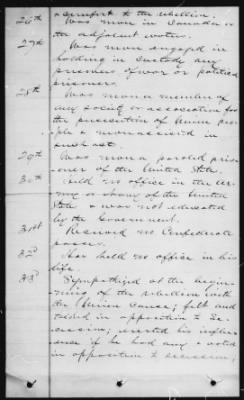 & comfort to the rebellion.
26th Was never in Canada or
the adjacent waters.
27th Was never engaged in
holding in custody any
prisoners of war or political
prisoners.
28th Was never a member of
any society or association for
the persecution of Union peo-
ple & never assisted in
such act.
29th Was never a paroled priso-
oner of the United States.
30th Held no office in the Ar-
my or Navy of the United
States & was not educated
by the Government.
31st Received no Confederate
passes.
32d Has held no office in his
life.
33d Sympathized at the begin-
ning of the rebellion with
the Union Cause; felt and
talked in opposition to Se-
cession; exerted his influ-
ence if he had any & voted
in opposition to secession;